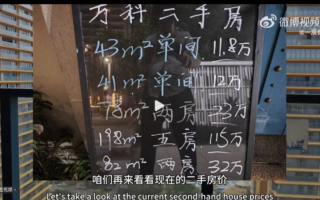 万科二手房
43m²单间 11.8万
41m²单间 12万
78m²两房 23万
198m²五房 115万
82m²两房 32万
微博视频
咱们再来看看现在的二手房价
Let's take a look at the current second-hand house prices